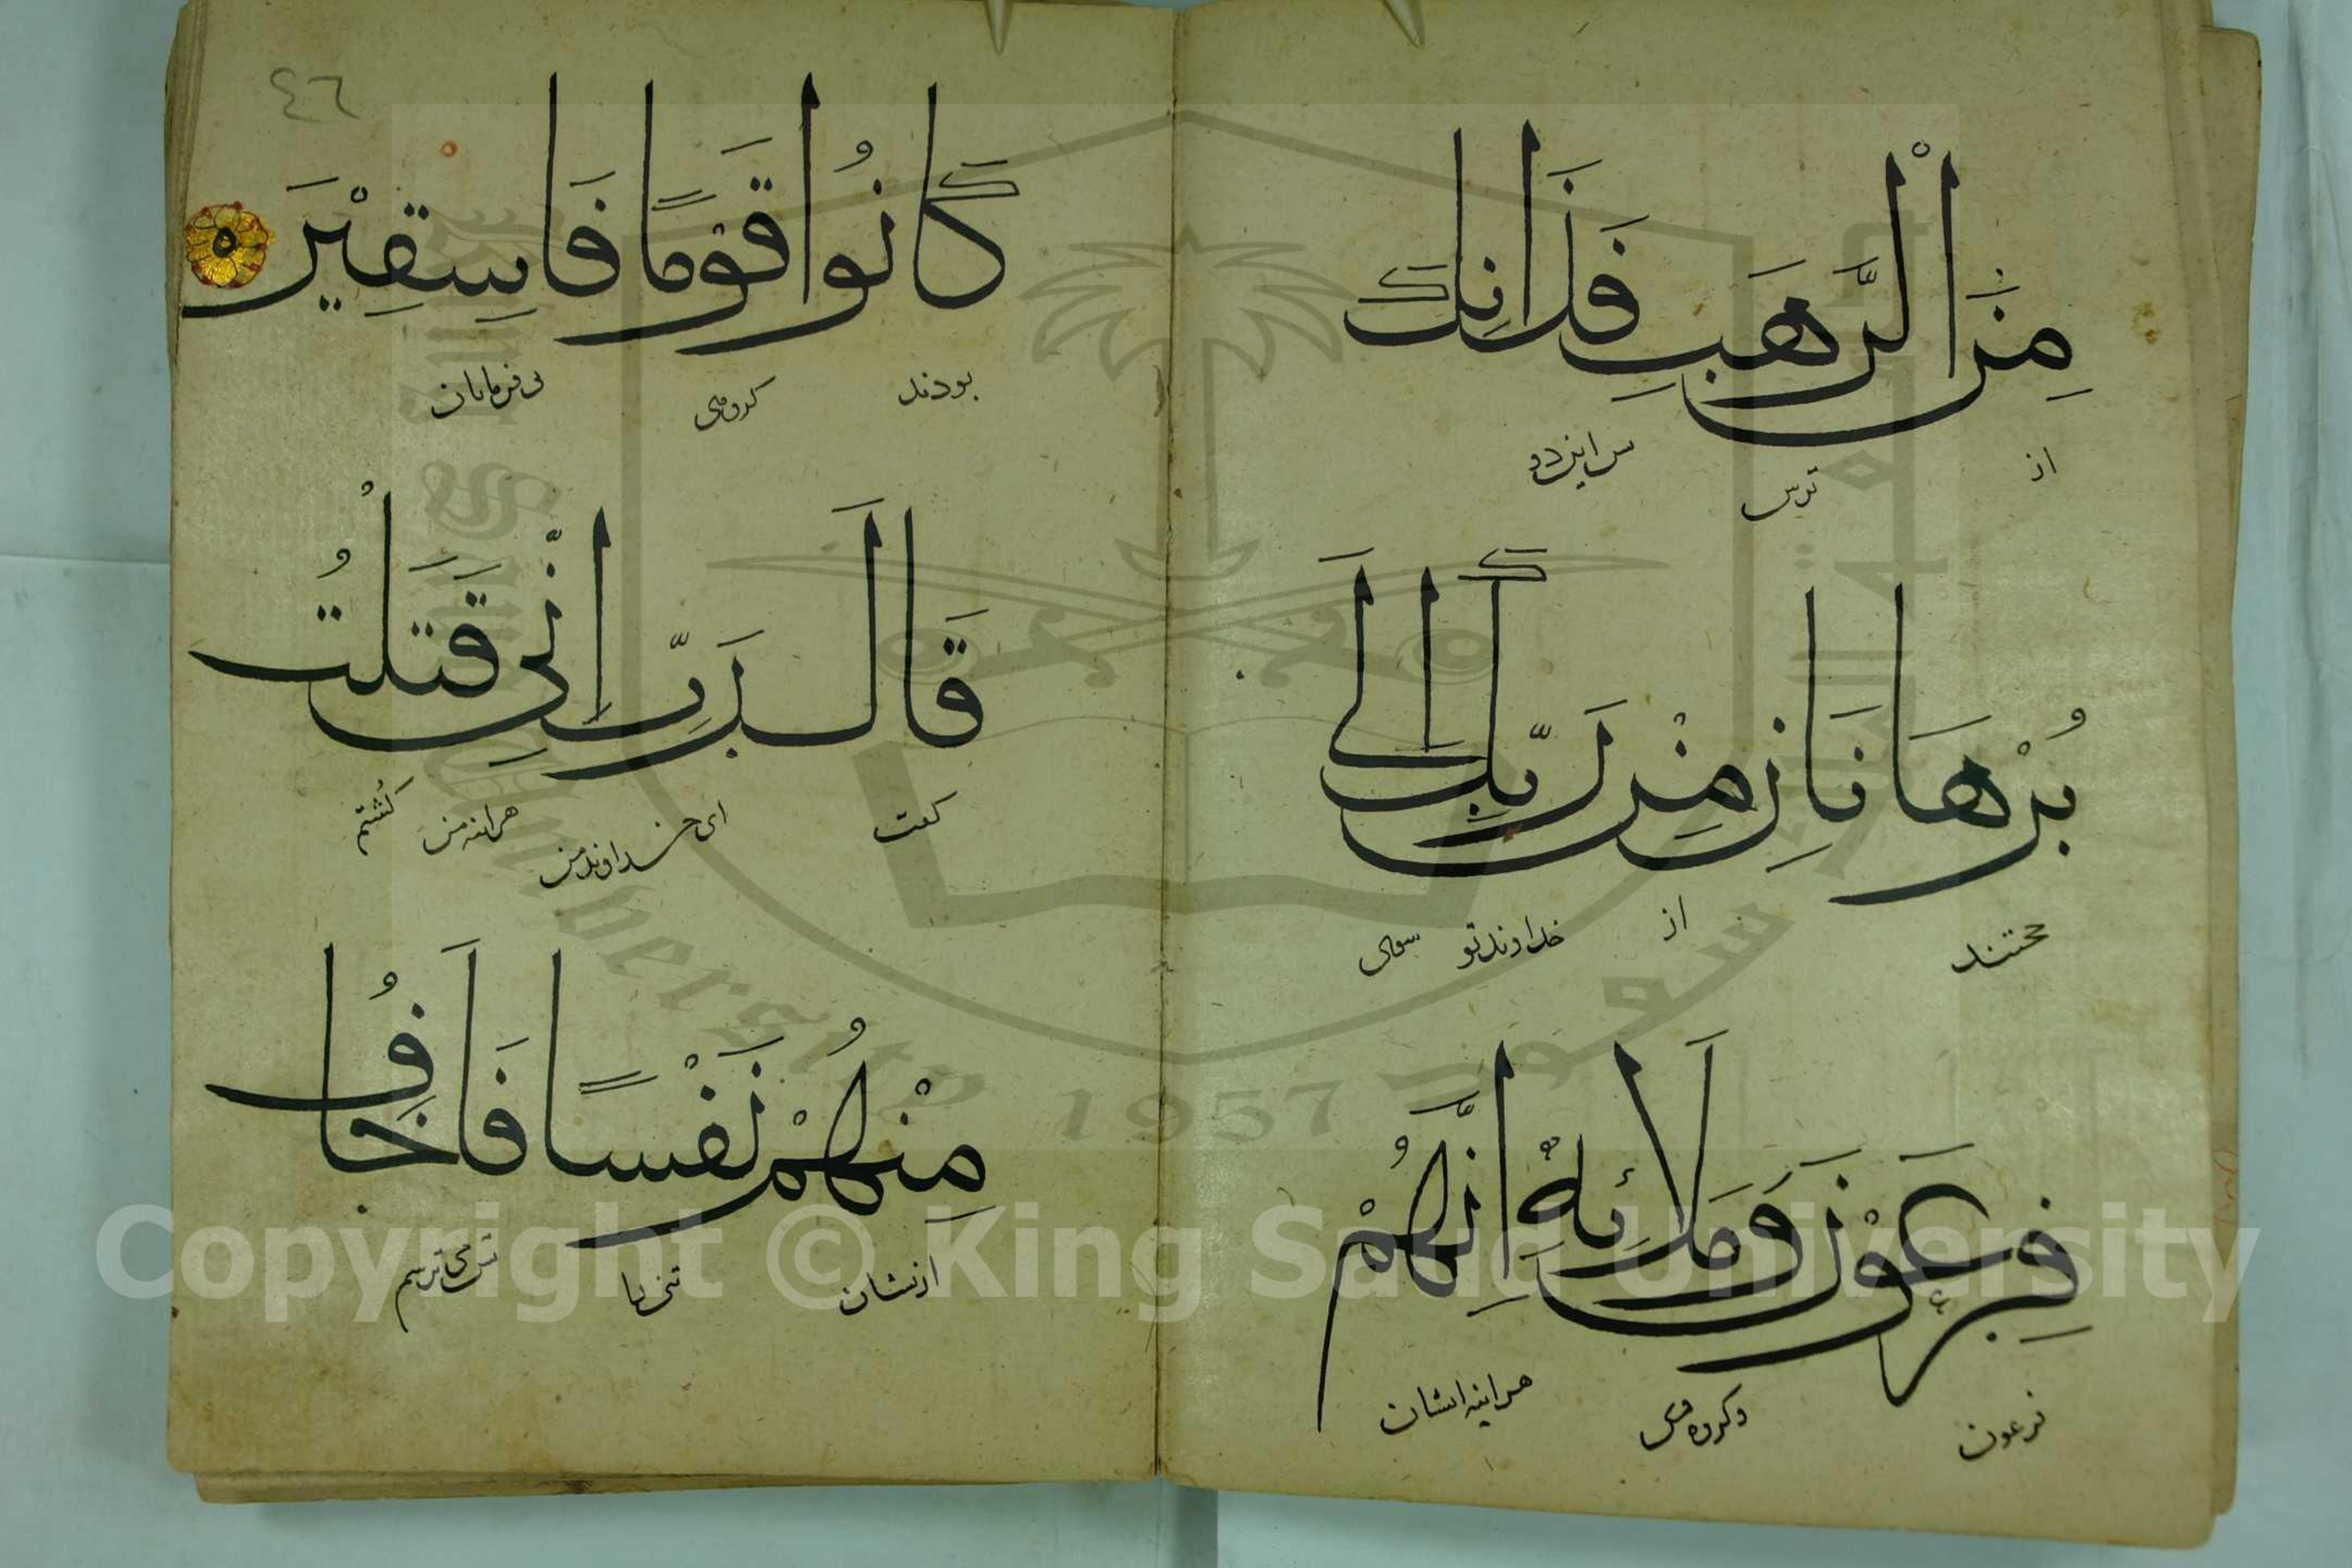 مِنَ الْرَّهَبِ فَذَانِكَ
از ترس س این دو
بُرْهَانَانِ مِنْ رَبِّكَ اِلَى
حجتند از خداوند تو سوی
فِرْعَوْنَ وَمَلَائِهٖ اِنَّهُمْ
فرعون وکروه وی هراینه ایشان
٤٦
كَانُوا قَوْمًا فَاسِقِيْنَ ه
بودند کروهی بی فرمانان
قَالَ رَبِّ اِنِّي قَتَلْتُ
کفت ای خداوند من هراینه من کُشتم
مِنْهُمْ نَفْسًا فَاَخَافُ
ازیشان تنی را می ترسم
Copyright © King Saud University
1957